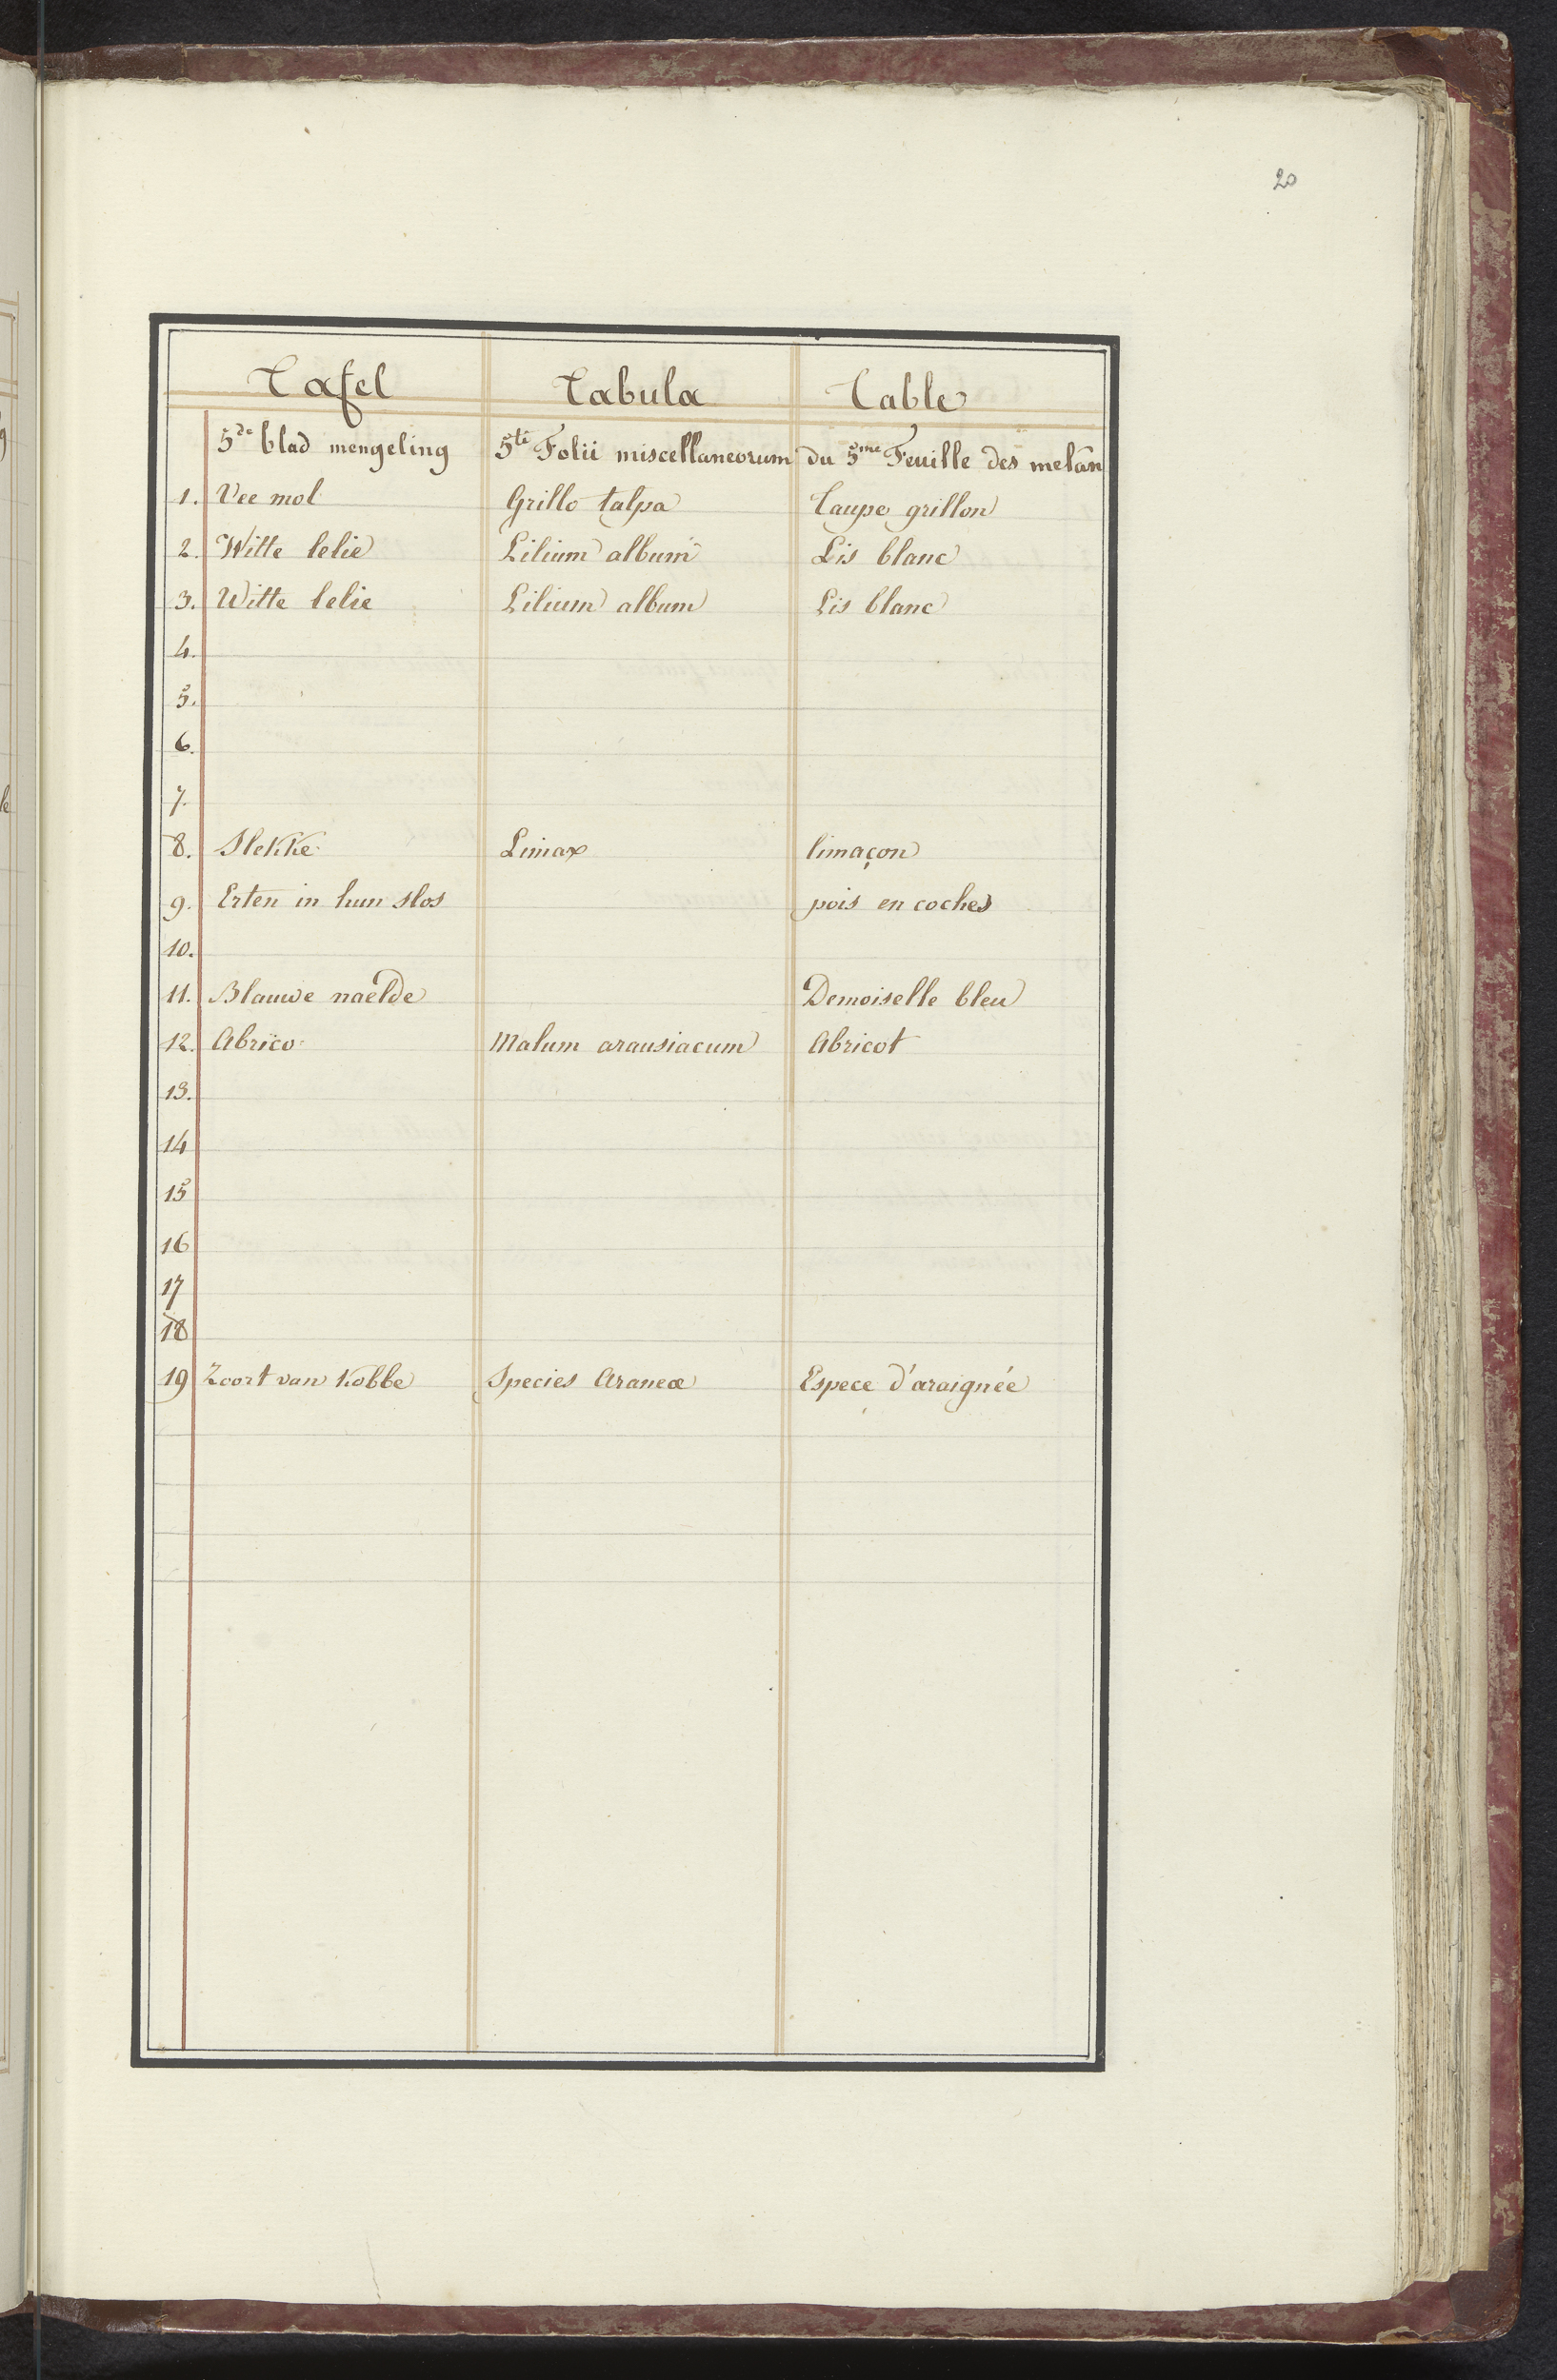 20
Tafel Tabula Table
5de blad mengeling 5ti Folii miscellaneorum du 5me Feuille des melân
1. Vee mol Grillo talpa Taupe grillon
2. Witte lelie Lilium album Lis blanc
3. Witte lelie Lilium album Lis blanc
4.
5.
6.
7.
8. Slekke Limax limaçon
9. Erten in hun slos pois en coches
10.
11. Blauwe naelde Demoiselle bleu
12. Abrico Malum arausiacum Abricot
13.
14
15
16
17
18
19 Zoort van Kobbe Species Araneæ Espece d'araignée